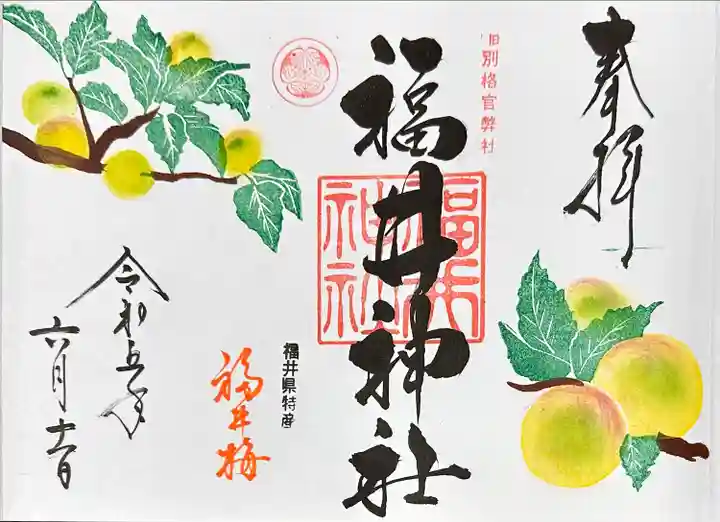 奉拝
旧別格官弊社
福井神社
福井
神社
福井県特産
福井梅
令和五年
六月